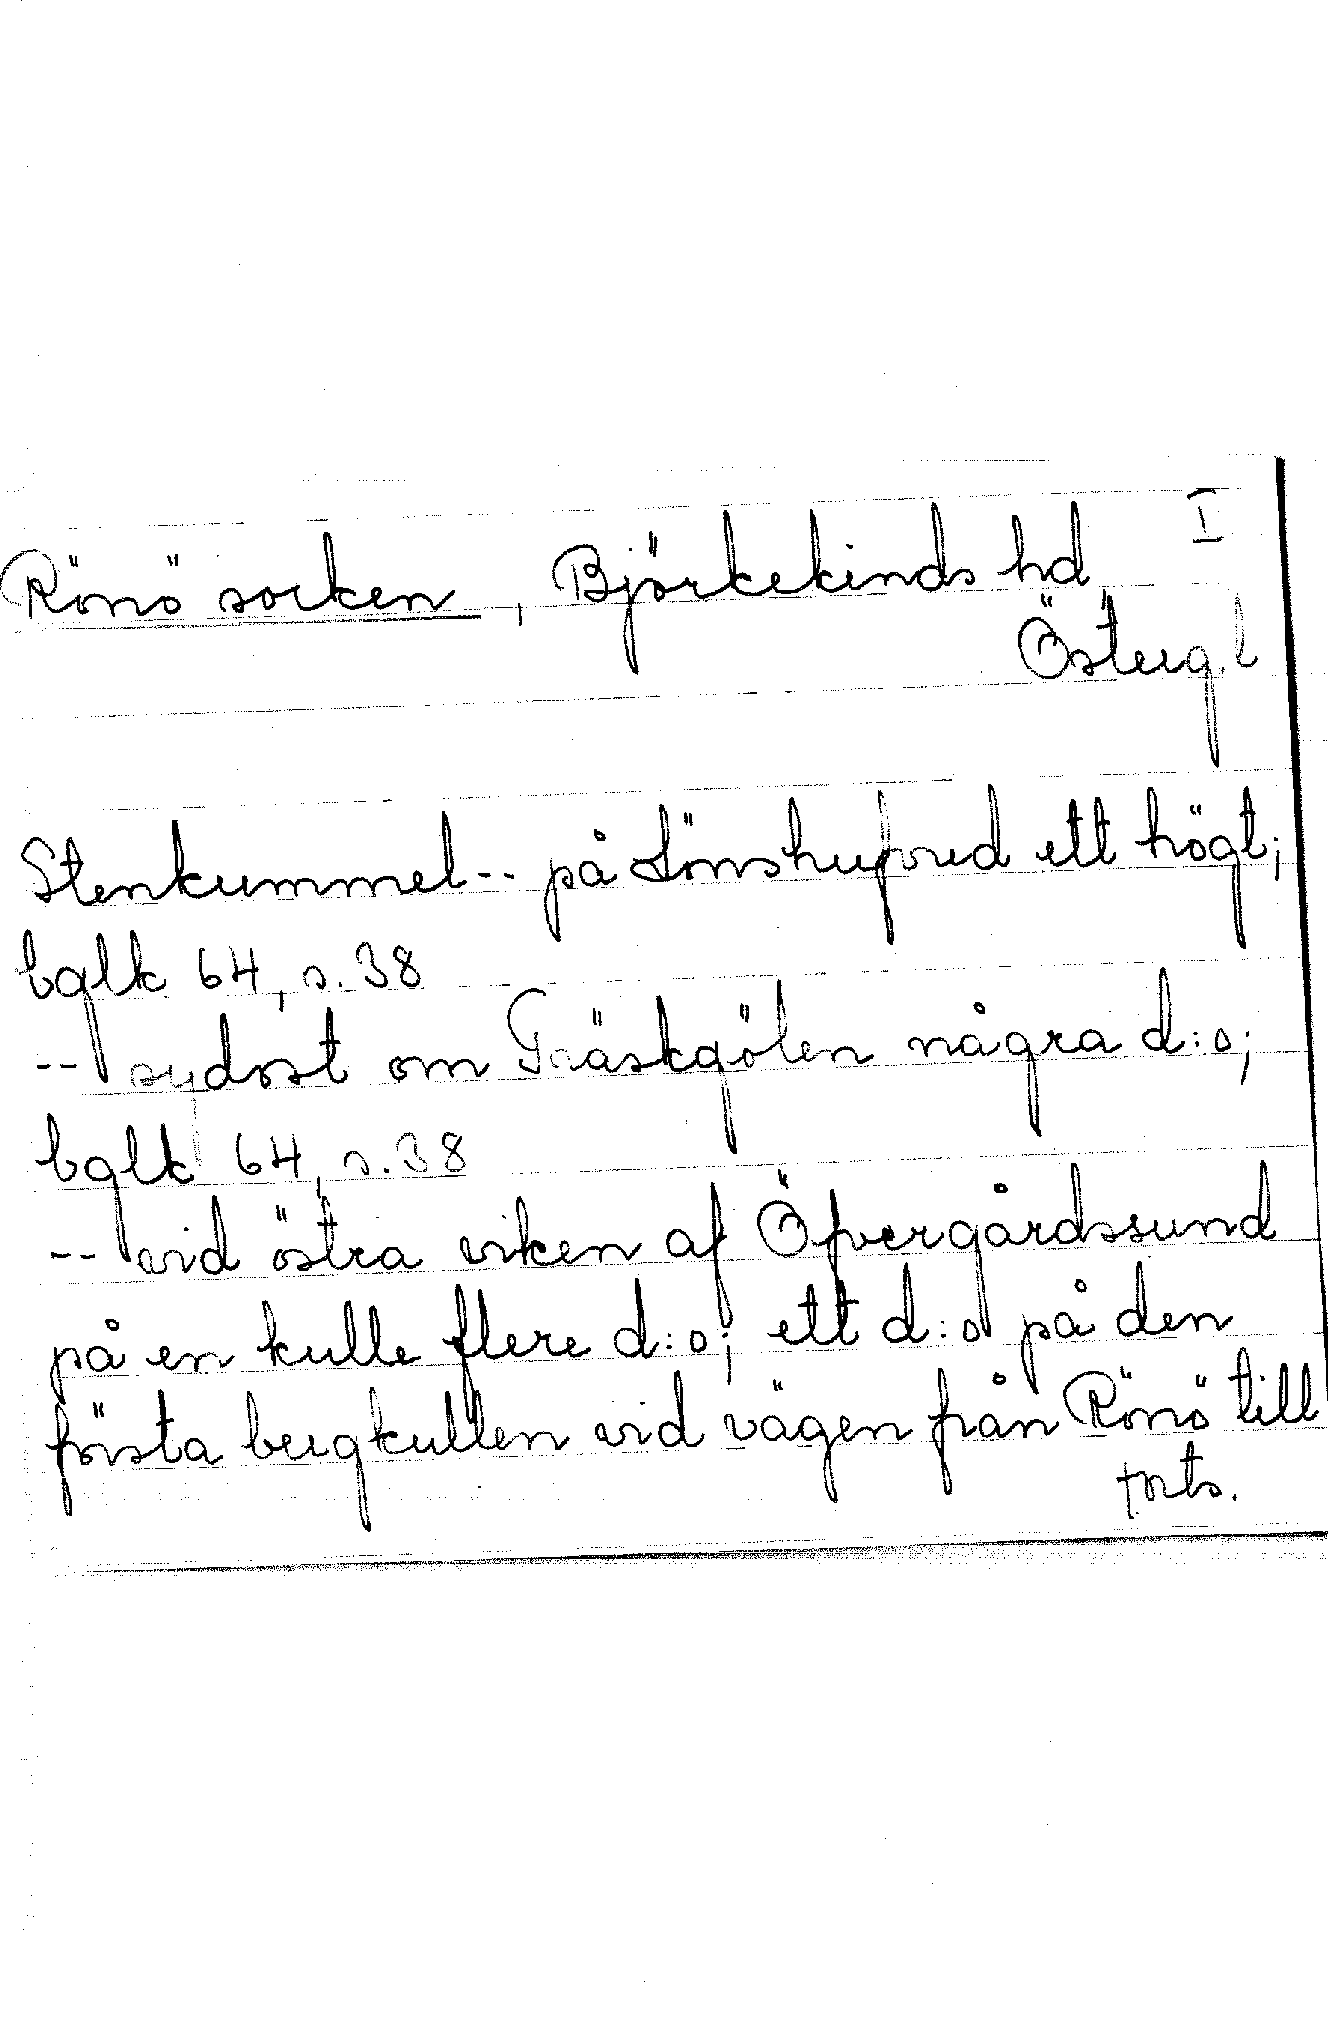 I
Rönö socken, Björkekinds hd,
Östergl
Stenkummel -- på Lönshufvud ett högt;
bglk 64, s. 38
-- sydost om Träskgölen några d:o;
bglk 64, s. 38
-- vid östra viken af Öfvergårdssund
på en kulle flere d:o; ett d:o på den
första bergkullen vid vägen från Rönö till
forts.